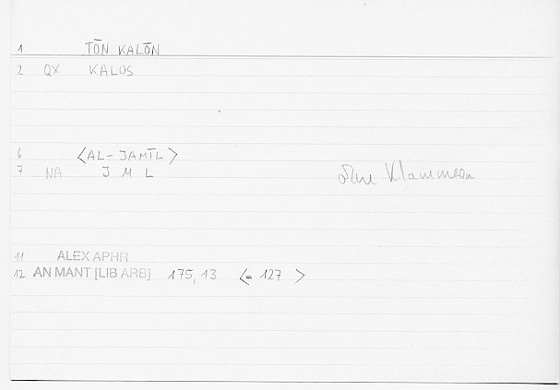 1 TŌN KALŌN
2 QX KALOS
6 <AL-JAMĪL>
7 NA J M L ohne Klammern
11 ALEX APHR
12 AN MANT [LIB ARB] 175,13 <= 127 >